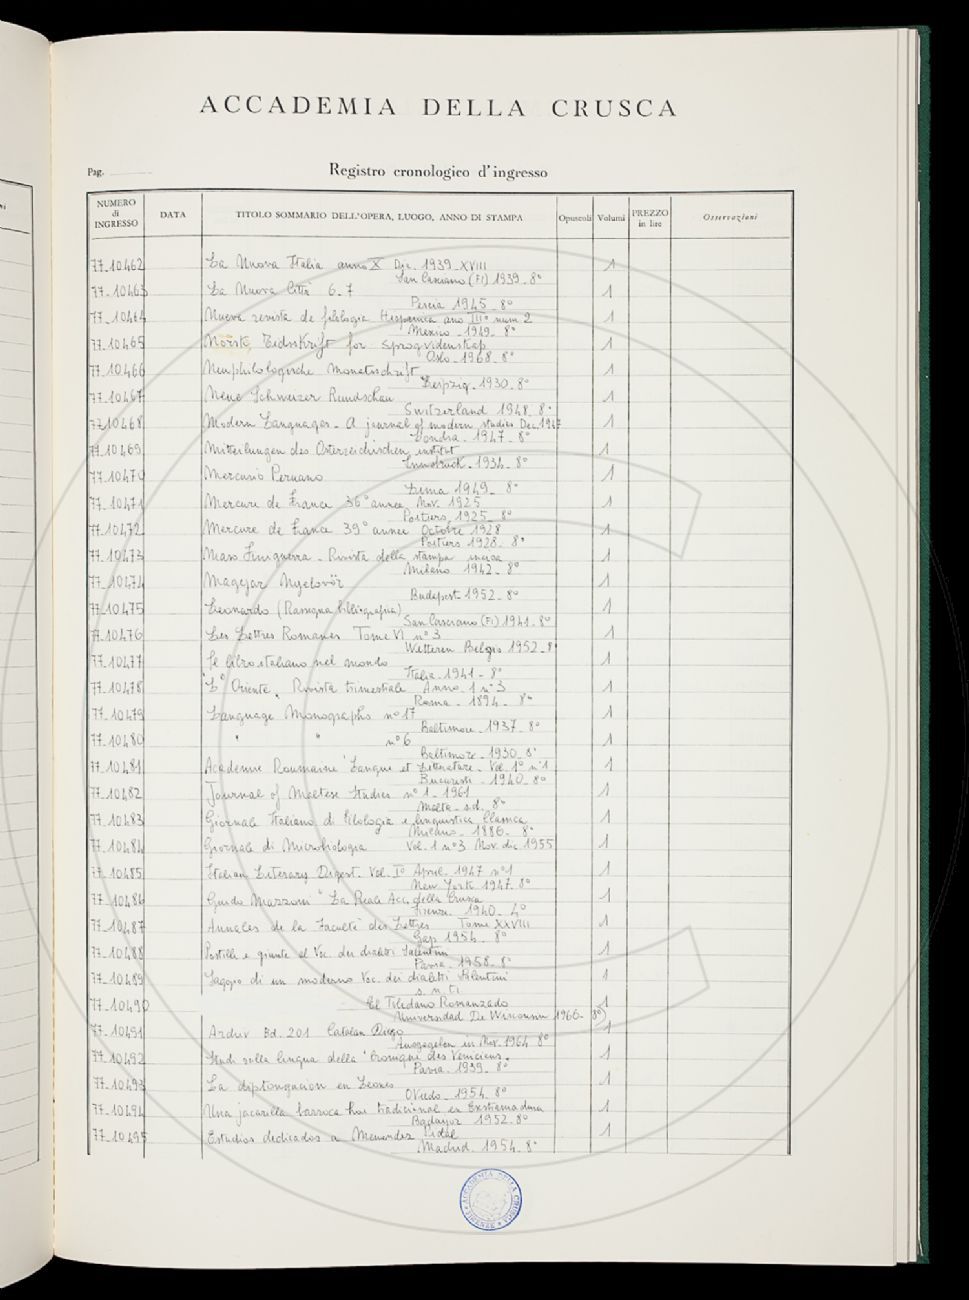 ACCADEMIA DELLA CRUSCA
Pag.
Registro cronologico d'ingresso
NUMERO di INGRESSO DATA TITOLO SOMMARIO DELL'OPERA, LUOGO, ANNO DI STAMPA Opuscoli Volumi PREZZO in lire Osservazioni
77_10462 La Nuova Italia anno X Dic. 1939_XVIII 1
San Casciano (FI) 1939_8°
77_10463 La Nuova Città 6_7 1
Pescia 1945_8°
77_10464 Nueva revista de filologia Hispanica ano III° num 2 1
Mexico_1949_8°
77_10465 Norsk Tidsskrift for sprogvidenskap 1
Oslo_1968_8°
77_10466 Neuphilologische Monatsschrift 1
Leipzig_1930_8°
77_10467 Neue Schweizer Rundschau 1
Switzerland 1948_8°
77_10468 Modern Languages_A journal of modern studies Dec.1947 1
Londra_1947_8°
77_10469 Mitteilungen des Osterreichischen institut 1
Innsbruck_1934_8°
77_10470 Mercurio Peruano 1
Lima 1949_8°
77_10471 Mercure de France 36° année Nov. 1925 1
Poitiers 1925_8°
77_10472 Mercure de France 39° année Octobre 1928 1
Poitiers 1928_8°
77_10473 Maso Finiguerra_Rivista della stampa incisa 1
Milano 1942_8°
77_10474 Magyar Nyelvőr 1
Budapest 1952_8°
77_10475 Leonardo (Rassegna bibliografica) 1
San Casciano (FI) 1941_8°
77_10476 Les Lettres Romanes Tome VI n°3 1
Wetteren Belgio 1952_8°
77_10477 Il libro italiano nel mondo 1
Italia_1941_8°
77_10478 "L'Oriente" Rivista trimestrale Anno 1 n°3 1
Roma_1894_8°
77_10479 Language Monographs n°17 1
Baltimore_1937_8°
77_10480 " " n°6 1
Baltimore_1930_8°
77_10481 Academie Roumaine "Langue et Litterature_Vol. 1° n°1 1
Bucuresti_1940_8°
77_10482 Journal of Maltese Studies n°1_1961 1
Malta_s.d. 8°
77_10483 Giornale Italiano di Filologia e linguistica Classica 1
Milano_1886_8°
77_10484 Giornale di Microbiologia Vol. 1 n°3 Nov. dic 1955 1
77_10485 Italian Literary Digest. Vol. I° April. 1947 n°1 1
New York 1947_8°
77_10486 Guido Mazzoni "La Reale Acc. della Crusca 1
Firenze_1940_4°
77_10487 Annales de la Faculté des Lettres Tome XXVIII 1
Gap 1954_8°
77_10488 Postille e giunte al Voc. dei dialetti Salentini 1
Pavia_1958_8°
77_10489 Saggio di un moderno Voc. dei dialetti Salentini 1
s.n.t.
77_10490 El Toledano Romanzado 1
Universidad De Wisconsin 1966_8°
77_10491 Archiv Bd. 201 Catalan Diego 1
Ausgegeben im Nov. 1964 8°
77_10492 Studi sulla lingua della "Cronique des Veniciens" 1
Pavia_1939_8°
77_10493 La diptongacion en Leones 1
Oviedo_1954_8°
77_10494 Una jacarilla barroca hoy tradicional en Extremadura 1
Badajoz 1952_8°
77_10495 Estudios dedicados a Menendez Pidal 1
Madrid_1954_8°
ACCADEMIA DELLA CRUSCA • FIRENZE •